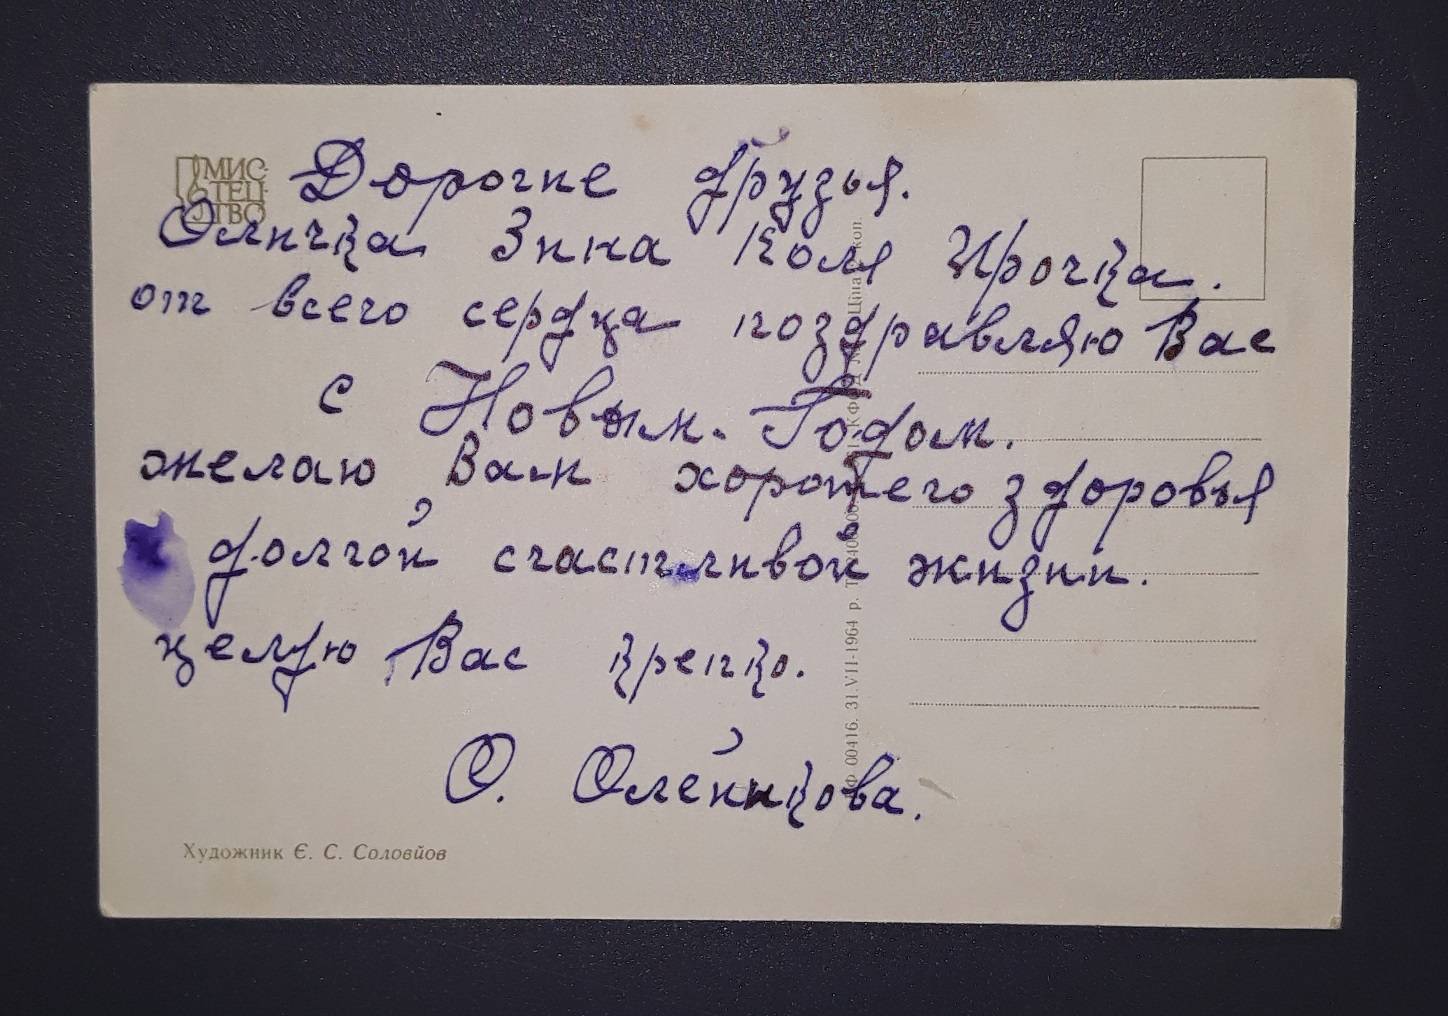 МИС-
ТЕЦ-
ТВО
Дорогие друзья.
Оличка Зина Коля Ирочка.
от всего сердца поздравляю Вас
с Новым. Годом.
желаю Вам хорошего здоровья
долгой счастливой жизни.
целую Вас крепко.
О. Олейникова.
Художник Є. С. Соловйов
00416. 31.VII-1964 р.
Ціна коп.